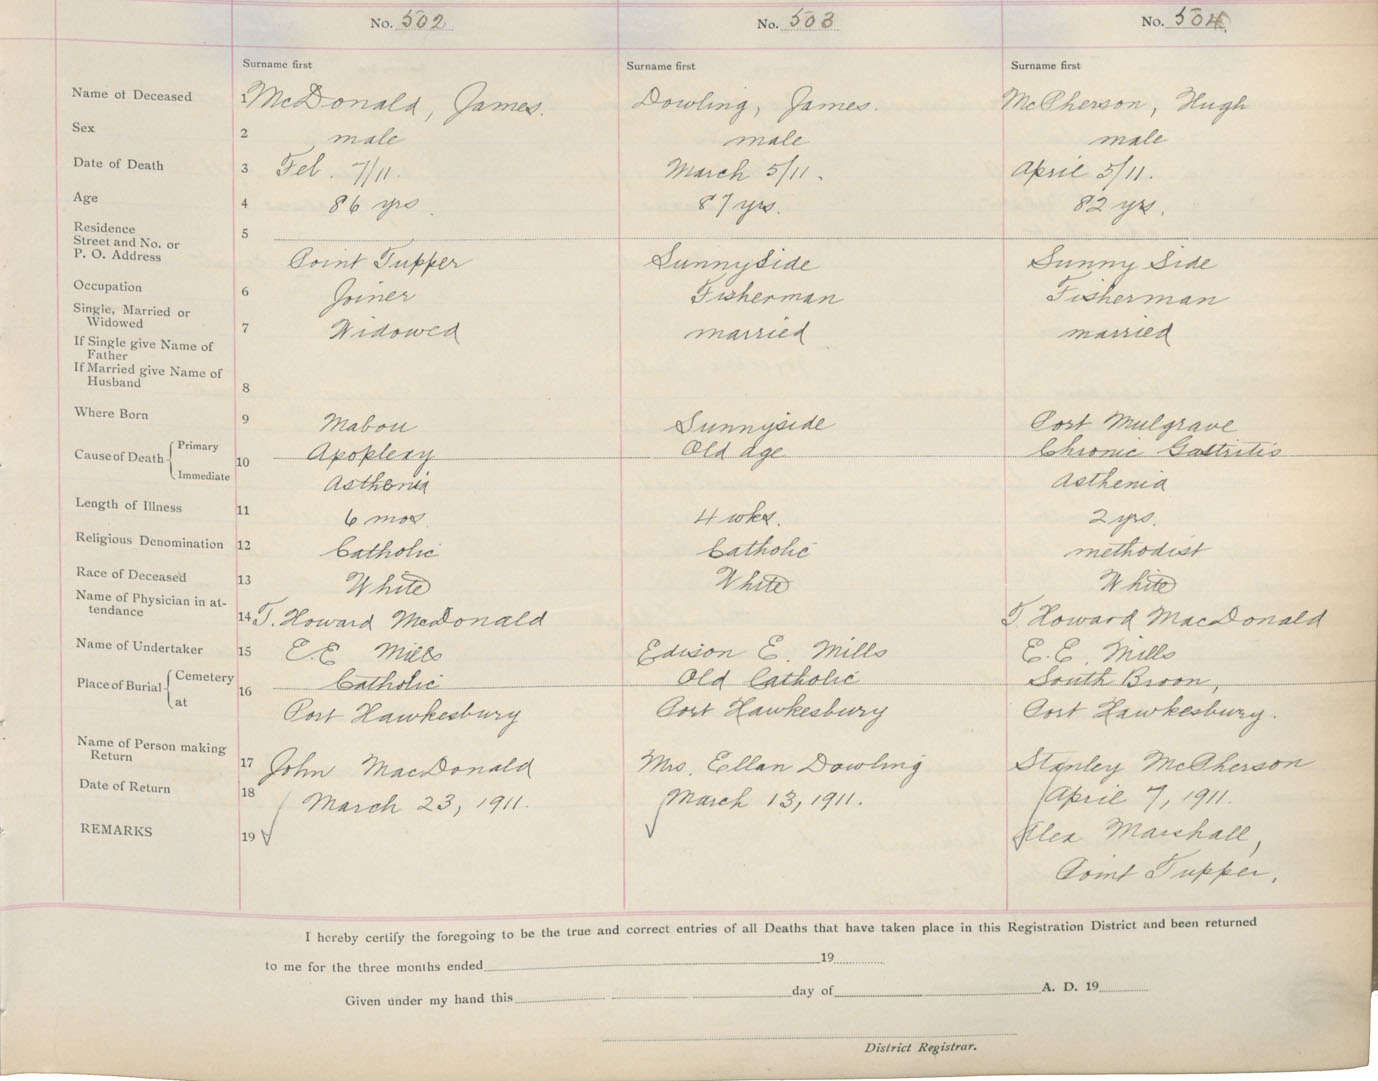 No. 502 No. 503 No. 504
Surname first Surname first Surname first
Name of Deceased 1 McDonald, James. Dowling, James. McPherson, Hugh
Sex 2 male male male
Date of Death 3 Feb. 7/11. March 5/11. April 5/11.
Age 4 86 yrs 87 yrs. 82 yrs.
Residence
Street and No. or 5
P. O. Address Point Tupper Sunnyside Sunny Side
Occupation 6 Joiner Fisherman Fisherman
Single, Married or
Widowed 7 Widowed married married
If Single give Name of
Father
If Married give Name of
Husband 8
Where Born 9 Mabou Sunnyside Port Mulgrave
Cause of Death Primary 10 Apoplexy Old age Chronic Gastritis
Immediate Asthenia Asthenia
Length of Illness 11 6 mos. 4 wks. 2 yrs.
Religious Denomination 12 Catholic Catholic methodist
Race of Deceased 13 White White White
Name of Physician in at-
tendance 14 T. Howard McDonald T. Howard MacDonald
Name of Undertaker 15 E.E Mills Edison E. Mills E.E. Mills
Place of Burial Cemetery 16 Catholic Old Catholic South Broon,
at Port Hawkesbury Port Hawkesbury Port Hawkesbury.
Name of Person making
Return 17 John MacDonald Mrs. Ellan Dowling Stanley McPherson
Date of Return 18 March 23, 1911. March 13, 1911. April 7, 1911.
REMARKS 19 Alex Marshall,
Point Tupper.
I hereby certify the foregoing to be the true and correct entries of all Deaths that have taken place in this Registration District and been returned
to me for the three months ended 19
Given under my hand this day of A. D. 19
District Registrar.